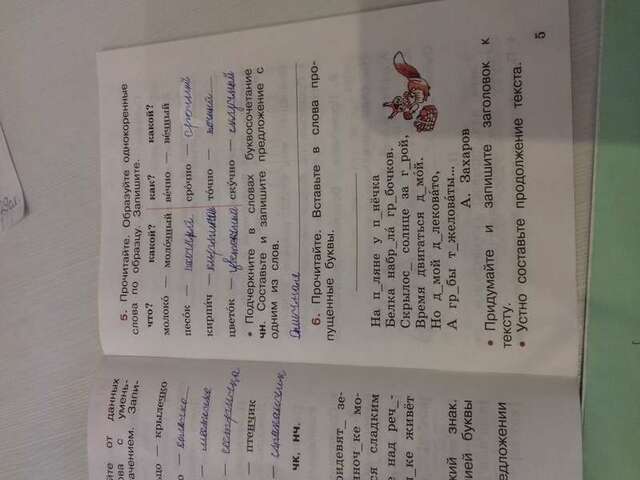 йте от данных
ова с умень-
ачением. Запи-
ьцо — крылечко
о — колечко
—
— сестрица
— птенчик
—
чк, нч.
ридевят_ зе-
нноч_ке мо-
ся сладким
е над реч_-
л_ке живёт
кий знак.
ией буквы
едложении
5. Прочитайте. Образуйте однокоренные
слова по образцу. Запишите.
что? какой? как? какой?
молоко́ — моло́чный ве́чно — ве́чный
песо́к — сро́чно — срочный
кирпи́ч — то́чно —
цвето́к — ску́чно — скучный
• Подчеркните в словах буквосочетание
чн. Составьте и запишите предложение с
одним из слов.
6. Прочитайте. Вставьте в слова про-
пущенные буквы.
На п_ляне у п_нёчка
Белка набр_ла́ гр_бочков.
Скрылос_ солнце за г_рой,
Время двигаться д_мо́й.
Но д_мой д_лекова́то,
А гр_бы т_желова́ты...
А. Захаров
• Придумайте и запишите заголовок к
тексту.
• Устно составьте продолжение текста.
5